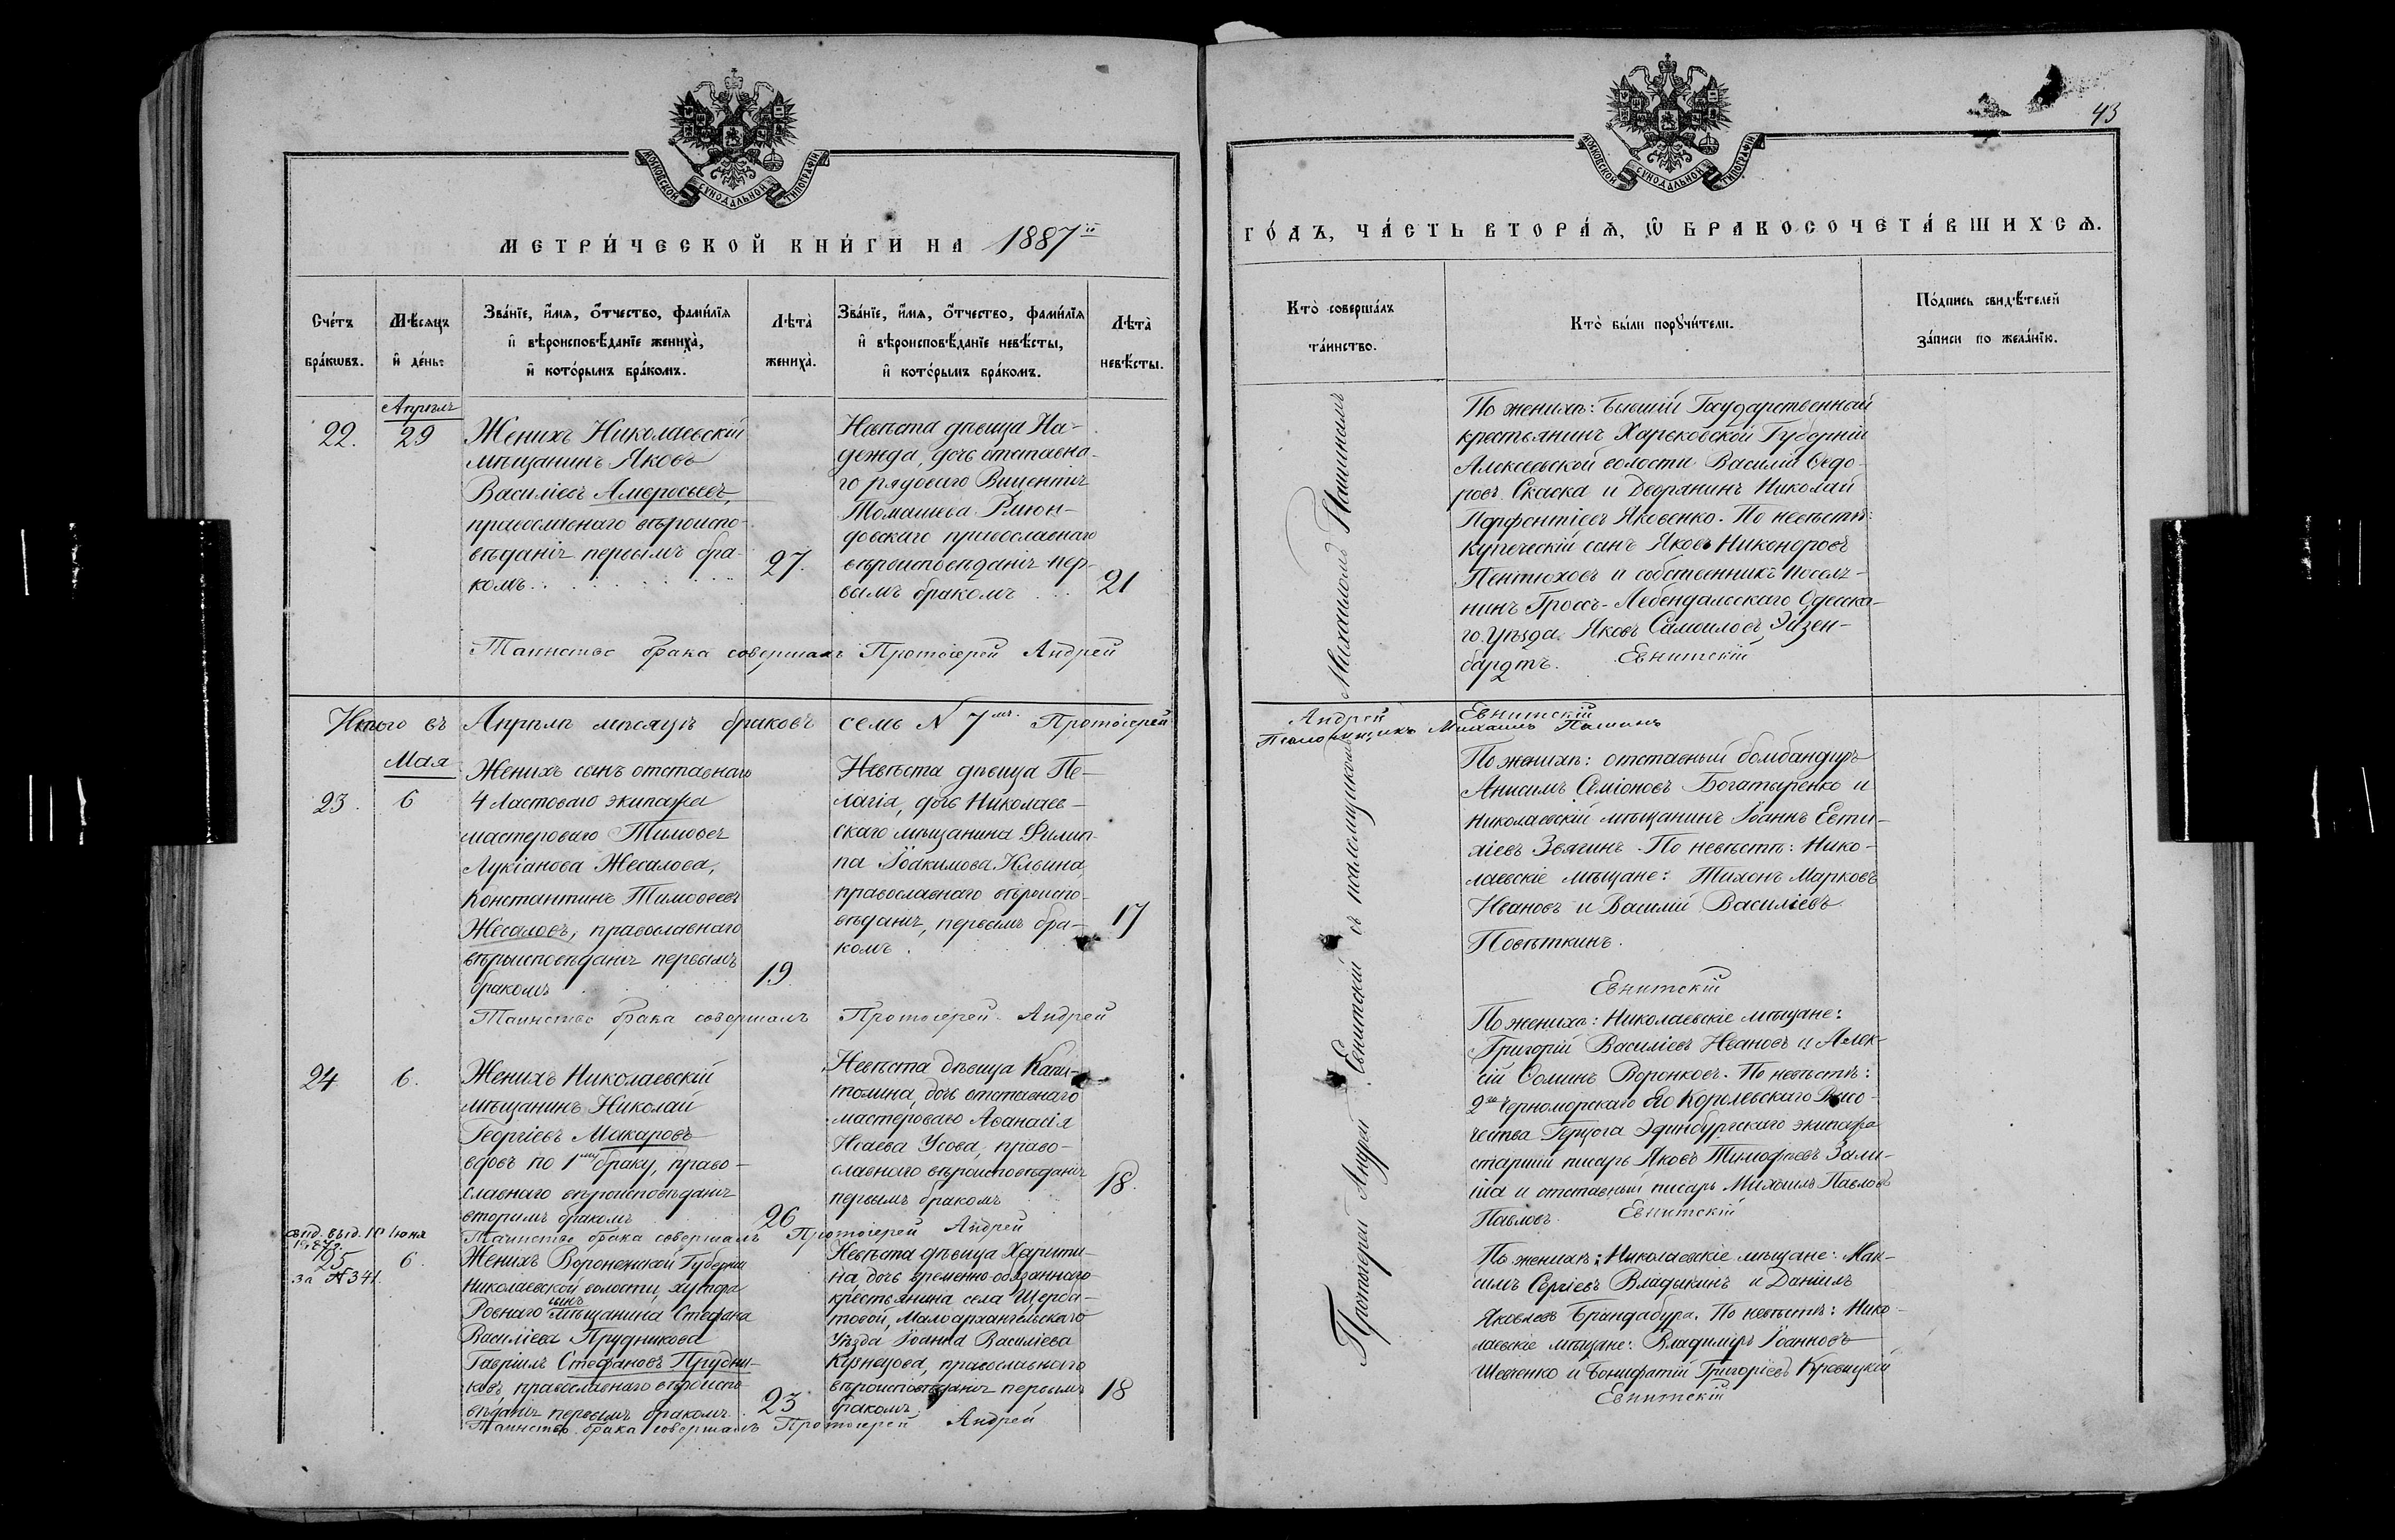 МОСКОВСКОЙ СУНОДАЛЬНОЙ ТИПОГРАФІИ
МЕТРИ́ЧЕСКОЙ КНИ́ГИ НА 1887й
Сче́тъ бра́ковъ.
Мѣ́сяцъ и де́нь.
Зва́нїе, и҆́мѧ, ѻ҆́тчество, фами́лїѧ и҆ вѣроисповѣ́данїе жениха̀, и҆ кото́рымъ бра́комъ.
Лѣта̀ жениха̀.
Зва́нїе, и҆́мѧ, ѻ҆́тчество, фами́лїѧ и҆ вѣроисповѣ́данїе невѣ́сты, и҆ кото́рымъ бра́комъ.
Лѣта̀ невѣ́сты.
Апрѣль
22.
29
Женихъ Николаевскій
мѣщанинъ Яковъ
Василіевъ Амвросьевъ,
православнаго вѣроиспо-
вѣданія первымъ бра-
комъ
27.
Невѣста дѣвица На-
дежда, дочь отставна-
го рядоваго Викентія
Томашева
довскаго православнаго
вѣроисповѣданія пер-
вымъ бракомъ
21
Таинство брака совершалъ Протоіерей Андрей
Итого въ Апрѣлѣ мѣсяцѣ браковъ семь № 7мь. Протоіерей
Мая
23.
6
Женихъ сынъ отставнаго
4 Ластоваго экипажа
мастероваго Тимоѳея
Лукіанова Жесалова,
Константинъ Тимоѳеевъ
Жесаловъ, православнаго
вѣроисповѣданія первымъ
бракомъ
19
Невѣста дѣвица Пе-
лагія, дочь Николаев-
скаго мѣщанина Филип-
па Іоакимова Ильина,
православнаго вѣроиспо-
вѣданія, первымъ бра-
комъ.
17
Таинство брака совершалъ Протоіерей Андрей
24
6.
Женихъ Николаевскій
мѣщанинъ Николай
Георгіевъ Макаровъ
вдовъ по 1му браку, право-
славнаго вѣроисповѣданія
вторымъ бракомъ
26
Невѣста дѣвица Капи-
толина, дочь отставнаго
мастероваго Аѳанасія
Исаева Усова, право-
славнаго вѣроисповѣданія
первымъ бракомъ
18.
Таинство брака совершалъ Протоіерей Андрей
свид. выд. 10 Іюня
за № 341.
25
6.
Женихъ Воронежской Губерніи
Николаевской волости, хутора
Ровнаго сынъ мѣщанина Стефана
Василіева Прудникова
Гавріилъ Стефановъ Прудни-
ковъ, православнаго вѣроиспо-
вѣданія первымъ бракомъ.
23
Невѣста дѣвица Харити-
на, дочь временно-обязаннаго
крестьянина села Щерба-
товой, Малоархангельскаго
Уѣзда Іоанна Василіева
Кузнецова, православнаго
вѣроисповѣданія первымъ
бракомъ.
18
Таинство брака совершалъ Протоіерей Андрей
43
МОСКОВСКОЙ СУНОДАЛЬНОЙ ТИПОГРАФІИ
ГО́ДЪ, ЧА́СТЬ ВТОРА́Ѧ, Ѡ҆ БРАКОСОЧЕТА́ВШИХСѦ.
Кто̀ соверша́лъ та́инство.
Кто̀ бы́ли порꙋчи́тели.
По́дпись свидѣ́телей за́писи по жела́нїю.
Протоіерей Андрей Евнитскій съ псаломщикомъ Михаиломъ Пашинымъ
По женихѣ: бывшій Государственный
крестьянинъ Харьковской Губерніи
Алексѣевской волости Василій Ѳедо-
ровъ Скаска и Дворянинъ Николай
Парфентіевъ Яковенко. По невѣстѣ:
Купеческій сынъ Яковъ Никоноровъ
Пентюховъ и собственникъ поселя-
нинъ Гроссъ-Либендальскаго Одесска-
го Уѣзда Яковъ Самоиловъ Эйзен-
бардтъ. Евнитскій
Андрей Евнитскій
Псаломщикъ Михаилъ Пашинъ
По женихѣ: отставный бомбандиръ
Анисимъ Семіоновъ Богатыренко и
Николаевскій мѣщанинъ Іоаннъ Евти-
хіевъ Звягинъ. По невѣстѣ: Нико-
лаевскіе мѣщане: Тихонъ Марковъ
Ивановъ и Василій Василіевъ
Повѣткинъ.
Евнитскій
По женихѣ: Николаевскіе мѣщане:
Григорій Василіевъ Ивановъ и Алек-
сій Ѳоминъ Воронковъ. По невѣстѣ:
2го Черноморскаго Его Королевскаго Высо-
чества Герцога Эдинбургскаго экипажа
старшій писарь Яковъ Тимофѣевъ Зали-
ша и отставный писарь Михаилъ Павловъ
Павловъ. Евнитскій
По женихѣ: Николаевскіе мѣщане: Мак-
симъ Сергіевъ Владыкинъ и Даніилъ
Яковлевъ Брандабура. По невѣстѣ: Нико-
лаевскіе мѣщане: Владиміръ Іоанновъ
Шевченко и Бонифатій Григоріевъ Кровицкій
Евнитскій